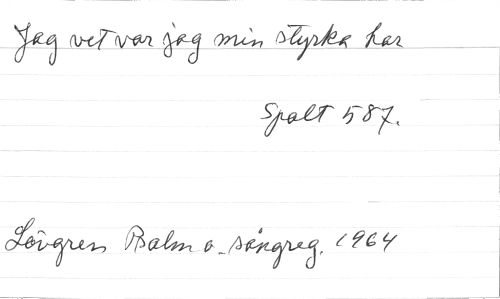 Jag vet var jag min styrka har
Spalt 587.
Lövgren Psalm o. sångreg. 1964